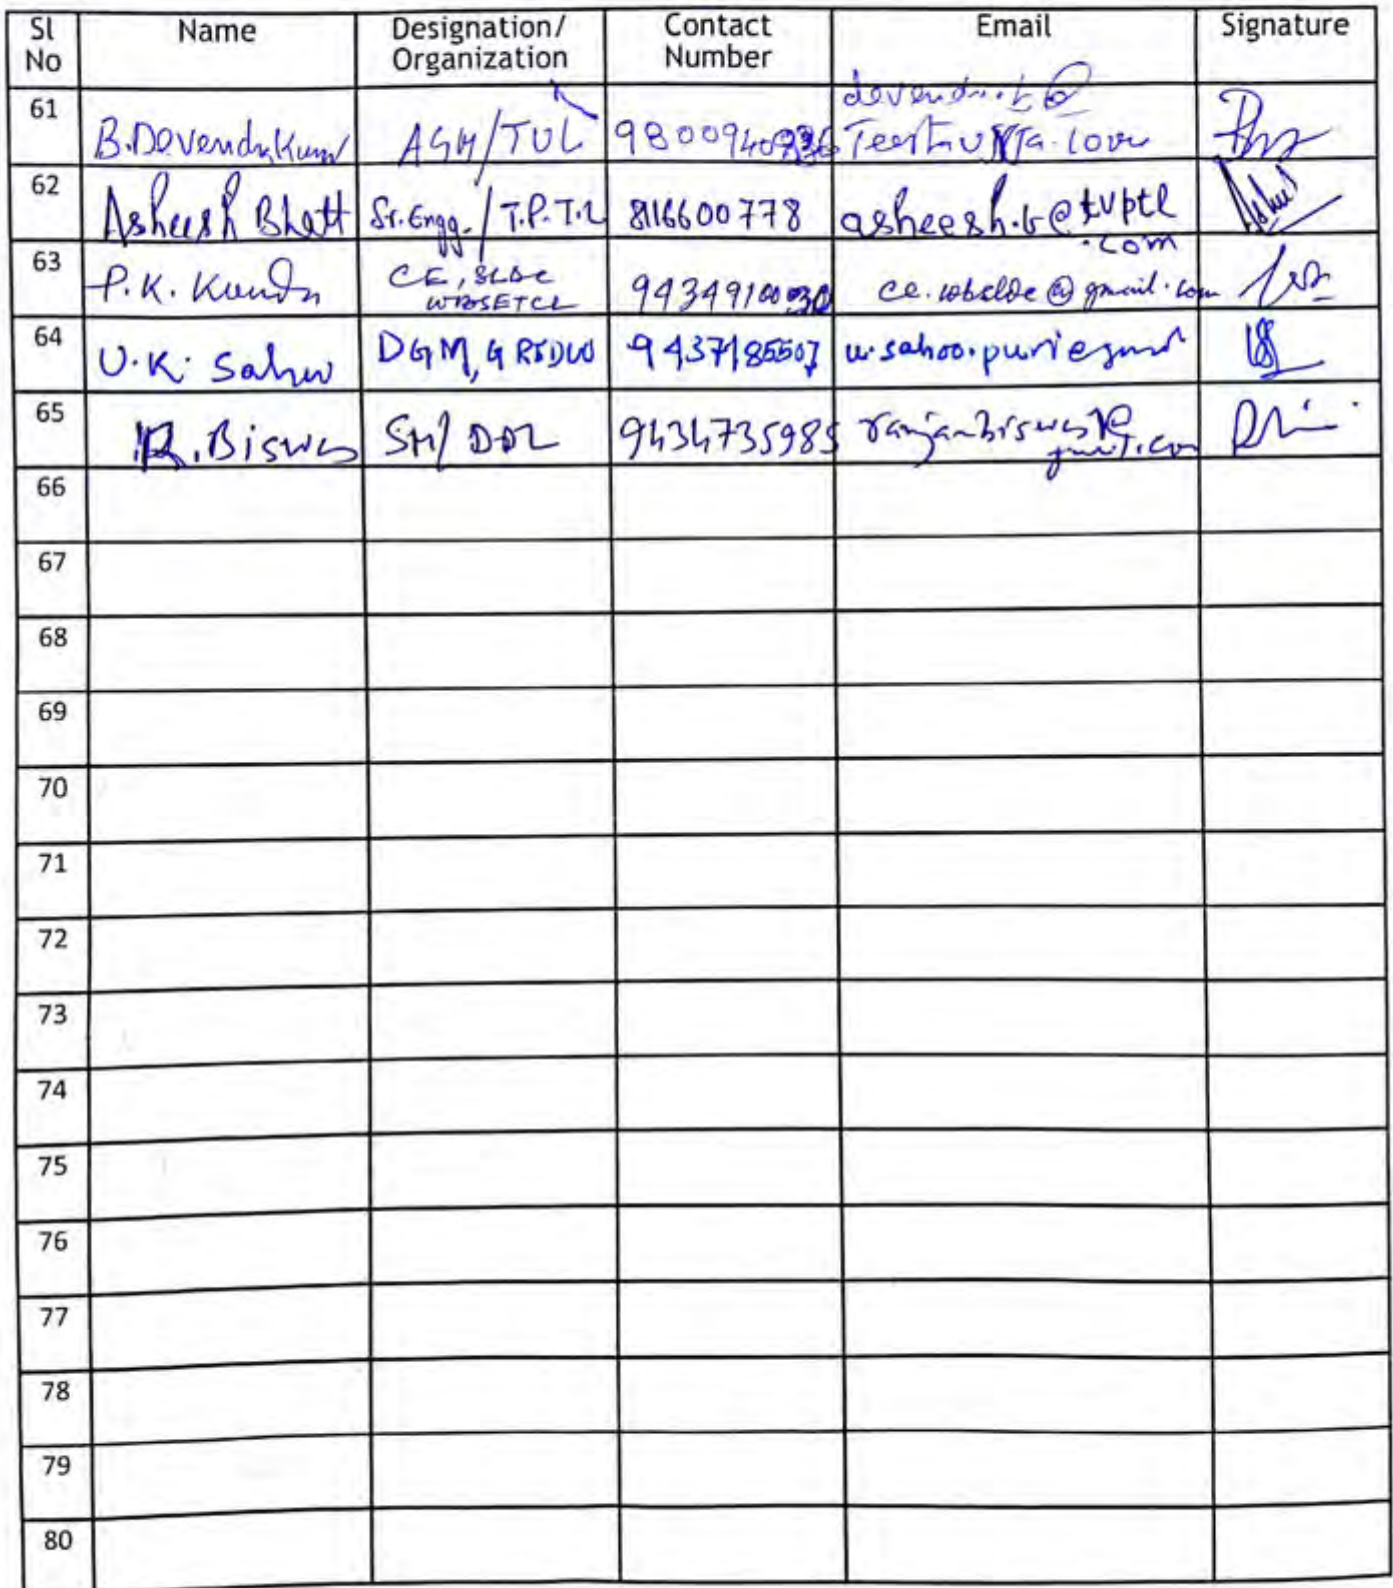 Sl No Name Designation/ Organization Contact Number Email Signature
61 B. Devendra Kumar AGM/TUL devendra.b@
62 Asheesh Bhatt Sr. Engg. / T.P.T.L 816600778 asheesh.b@tvptl
.com
63 P.K. Kundu CE, SLDC
WBSETCL 9434910030 @gmail.com
64 U.K. Sahoo DGM, GRIDCO 9437185507 u.sahoo.puri@gmail
65 R. Biswas SM/ DDL 9434735985 ranjanbiswas
66
67
68
69
70
71
72
73
74
75
76
77
78
79
80